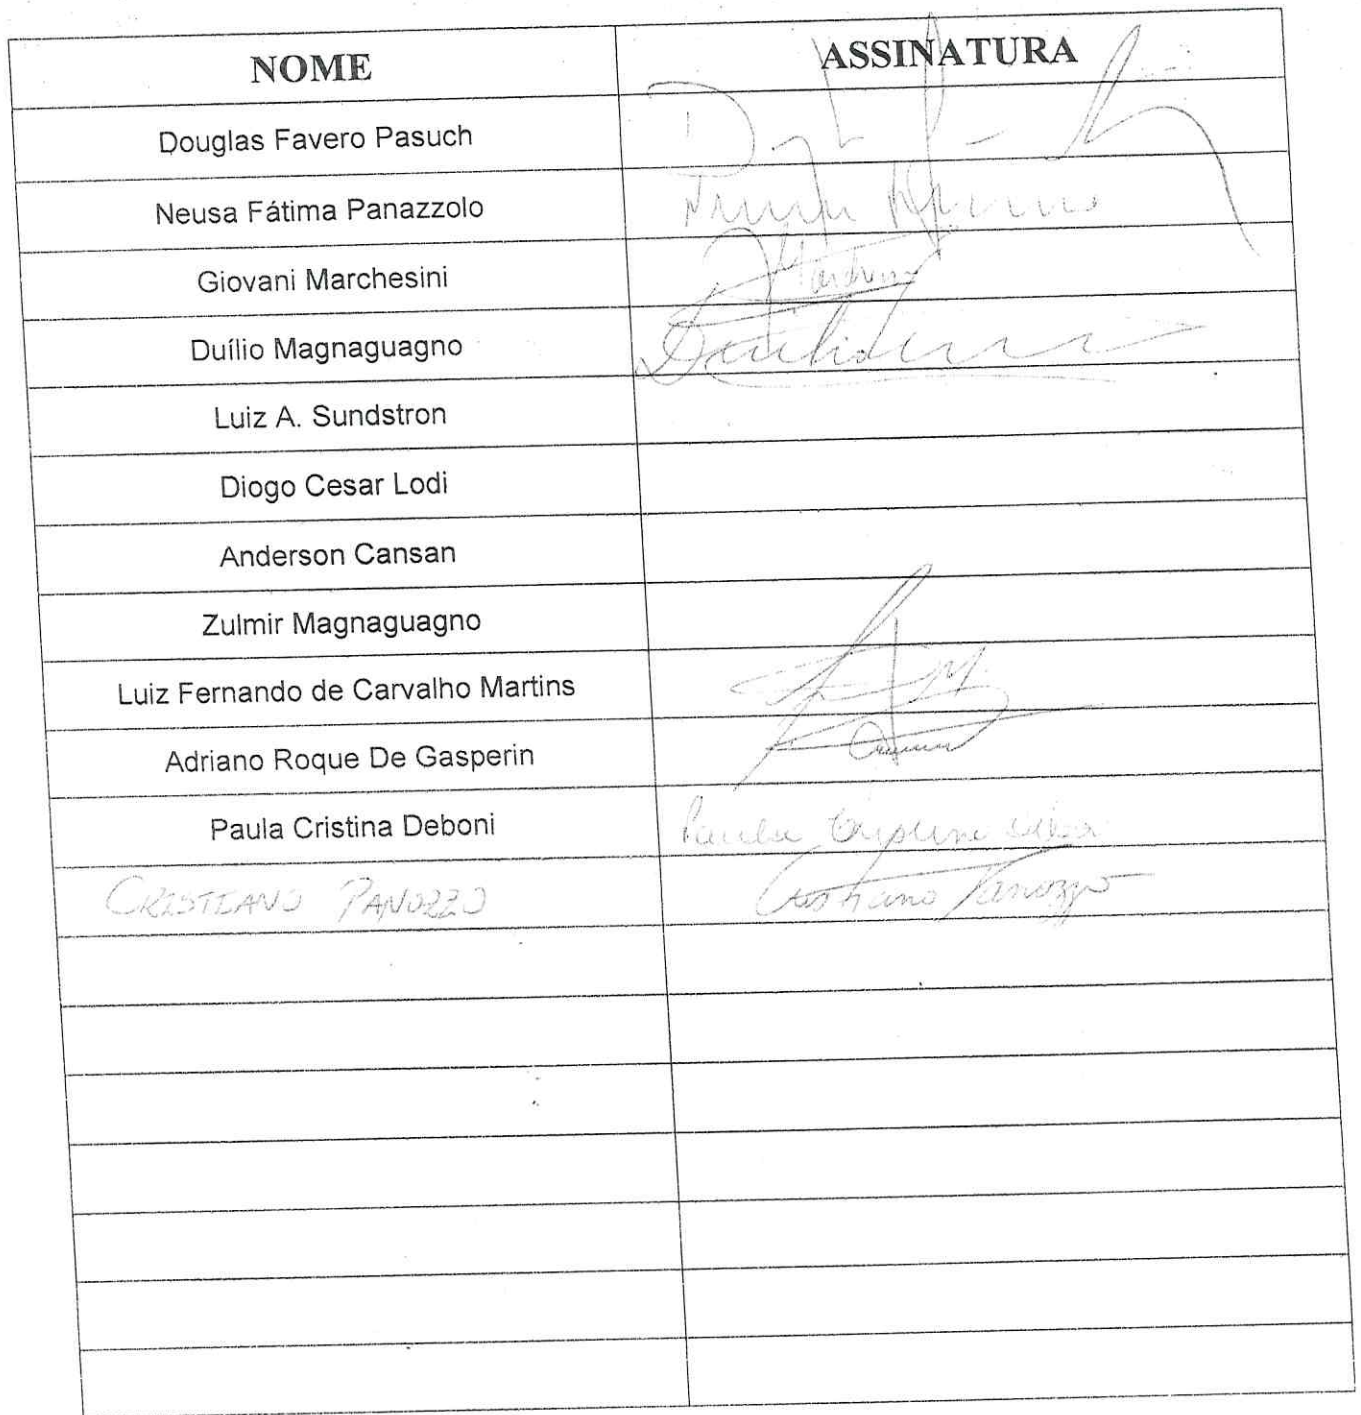 NOME ASSINATURA
Douglas Favero Pasuch
Neusa Fátima Panazzolo
Giovani Marchesini
Duílio Magnaguagno
Luiz A. Sundstron
Diogo Cesar Lodi
Anderson Cansan
Zulmir Magnaguagno
Luiz Fernando de Carvalho Martins
Adriano Roque De Gasperin
Paula Cristina Deboni Paula
CRISTIANO PANOZZO Cristiano Panozzo